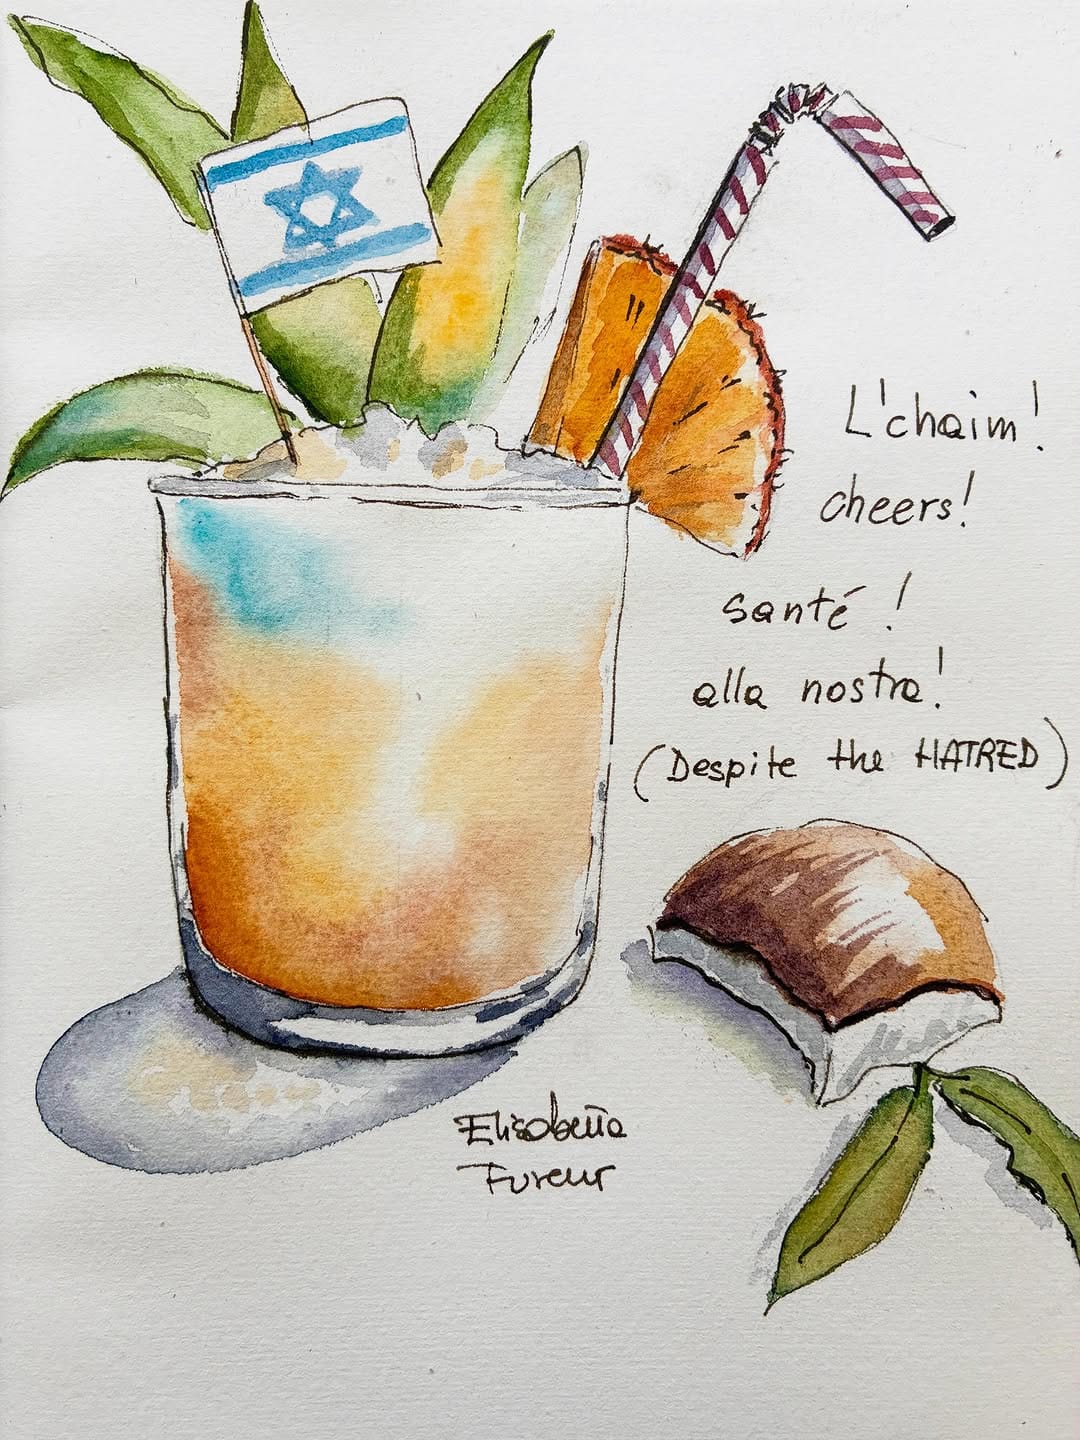 L'chaim!
cheers!
santé!
alla nostra!
(Despite the HATRED)
Fureur